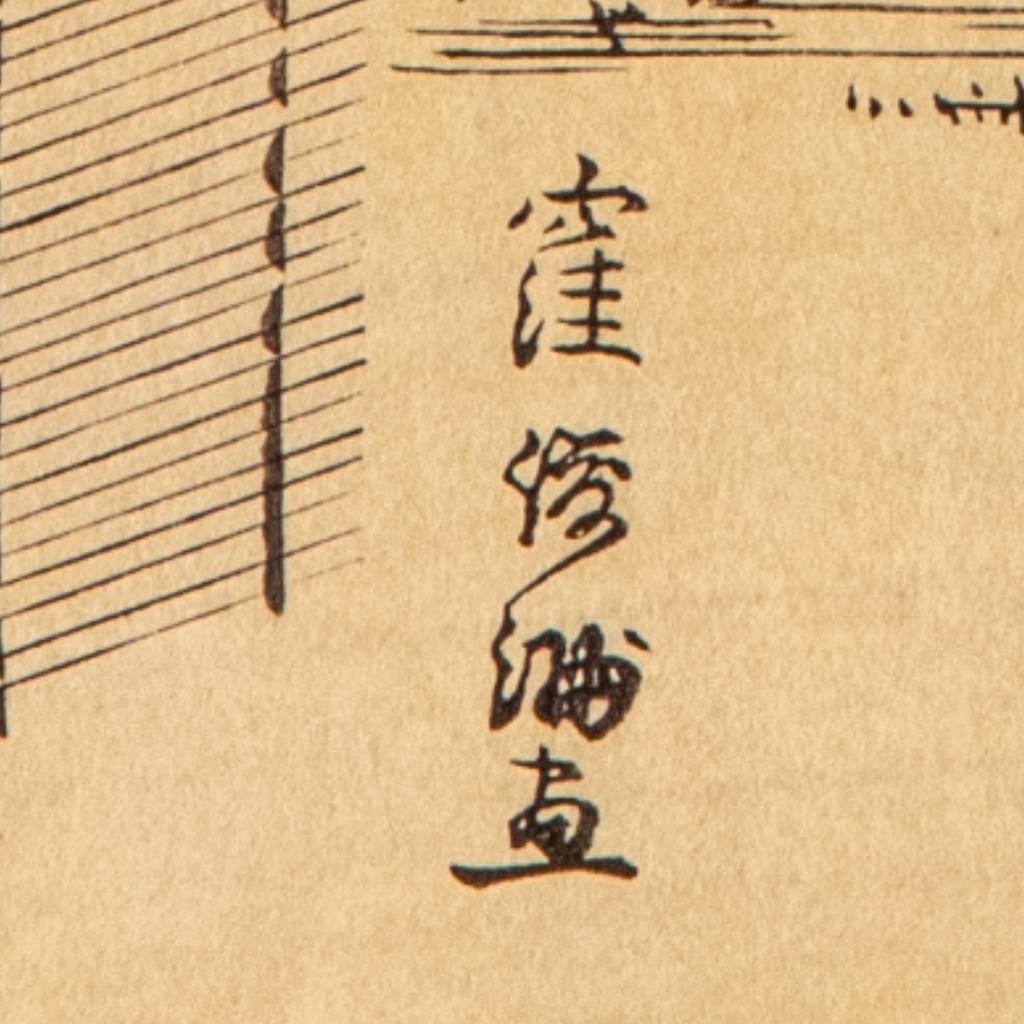 窪俊満画